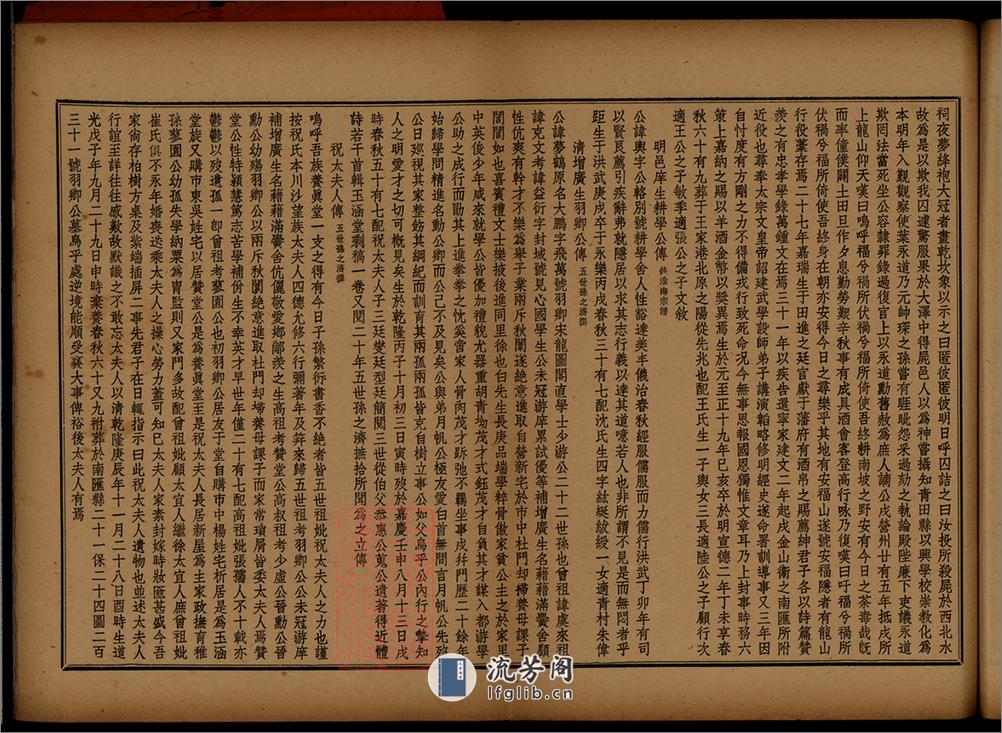 祠夜夢絳袍大冠者畫乾坎象以示之曰匿彼匿彼明日呼囚詰之曰汝授所殺屍於西北水
故爲是以欺我囚遽驚服果於大澤中得屍邑人以爲神嘗攝知青田縣以興學校崇教化爲
本明年入覲觀察使葉永道乃元帥琛之孫嘗有睚眦怨釆過劾之執論殿陛廉下吏議永道
欺罔法當死坐公容隸罪錄過復官上以永道勳舊赦爲庶人謫公戍營州廿有五年抵戍所
上龍山仰天嘆曰嗚呼福兮禍所倚使吾終身在朝禍兮福所伏使吾終耕南坡之野安有今日之荼毒哉旣
而率僮僕闢土田旦作夕息勤勞艱辛秋事有成具酒會客登高行咏乃復嘆曰吁福兮禍所
伏禍兮福所倚使吾終身在朝亦安得今日之尋樂乎其地有安福山遂號安福隱者有龍山
行役藁存焉二十七年嘉瑞生于田進之廷官獻于藩府有酒帛之賜薦紳君子多以詩篇贊
羡之有忠孝學錄萬鍾文在焉三十一年以疾告還寧家建文二年起戍金山衛之南匯所附
近役也尋奉太宗文皇帝詔建武學設師弟子講演韜略修明經史遂命署訓導事又三年因
自忖度有方剛之力不得備戎行致死命况今無事思報國恩獨惟文章耳乃上封事時務六
策上嘉納之賜以羊酒金幣以獎異焉生於元至正十九年己亥卒於明宣德二年丁未享春
秋六十有九葬于王家港北原之陽從先兆也配王氏生一子輿女三長適陸公之子顧行次
適王公之子敏季適張公之子文敘
明邑庠生耕學公傳
公諱輿字公輅别號耕學舍人性豁達美丰儀治春秋經服儒服而力儒行洪武丁卯年有司
以賢良薦引疾辭弗就隱居以求其志行義以達其道噫若人也非所謂不見是而無悶者乎
距生于洪武庚戌卒于永樂丙戌春秋三十有七配沈氏生四子紘綖紱綬一女適青村朱偉
清增廣生羽卿公傳 五世孫之濟撰
公諱夢鶴原名大鵬字飛萬號羽卿宋龍圖閣直學士少游公二十二世孫也曾祖諱虞來祖
諱克文考諱益衍字封域號見心國學生公未冠游庠累試優等補增廣生名藉藉滿黌舍顧
性伉爽有幹才不樂爲舉子業兩斥秋闈遂絶意進取自營新宅於市中杜門却掃養母課子
誾誾如也喜賓禮文士樂掖後進同里徐也白先生長庚品端學粹骨傲家貧公主之於家里
中英俊少年咸來就學公皆優加禮貌尤器重胡青坳茂才式鈺茂才自負其才謀入都游學
公助之成行而勖其上進拳拳之忱奚啻家人骨肉茂才跅弛不羈坐事戍幷門歷二十餘年
始歸學問精進名動公卿而公已不及見矣公與弟月帆公極友愛白首無間言月帆公先歿
公日巡視其家整飭其綱紀而訓育其兩孤兩孤皆克自樹立事公如父焉乎公內行之摯知
人之明愛才之切可概見矣生於乾隆丙子十月初三日寅時歿於嘉慶壬申八月十三日戌
時春秋五十有七配祝太夫人子三廷燮廷型廷簡閱三世從伯父恭惠公蒐公遺著得近體
詩若干首輯玉涵堂剩稿一卷又閱二十年五世孫之濟摭拾所聞爲之立傳
祝太夫人傳 五世孫之濟撰
嗚呼吾族養眞堂一支之得有今日子孫繁衍書香不絶者皆五世祖妣祝太夫人之力也謹
按祝氏本川沙望族太夫人四德尤修六行彌著年及笄來歸五世祖考羽卿公公未冠游庠
補增廣生名藉藉滿黌舍伉儷敬愛鄉鄰羨之生高祖考贊堂公高叔祖考少虛公晉勳公晉
勳公幼殤羽卿公以兩斥秋闈絶意進取杜門却掃養母課子而家常瑣屑皆委太夫人焉贊
堂公性特穎慧篤志苦學補佾生不幸英才早世年僅二十有七配高祖妣張孺人不十載亦
鬱鬱以歿遺孤一卽曾祖考藝園公也初羽卿公居友于堂自購市中楊姓宅析居是爲玉涵
堂旋又購市東吳姓宅以居贊堂公是爲養眞堂至是祝太夫人長居新屋爲主家政撫育稚
孫藝園公幼孤失學納粟爲胄監則又家門多故配曾祖妣顧太宜人繼徐太宜人庶曾祖妣
崔氏俱不永年婚喪迭乘太夫人之操心勞力蓋可知已太夫人家素封嫁時妝匲甚盛今吾
家尙存柏樹方桌及紫端插屏二事先君子在日輒指示曰此祝太夫人遺物也並述太夫人
行誼至詳往往感歎故默識之不敢忘太夫人以清乾隆庚辰年十一月二十八日酉時生道
光戊子年九月二十九日申時棄養春秋六十又九祔葬於南匯縣二十一保二十四圖二百
三十一號羽卿公墓焉乎處逆境能順受襄大事俾裕後太夫人有焉
流芳阁
lfglib.cn